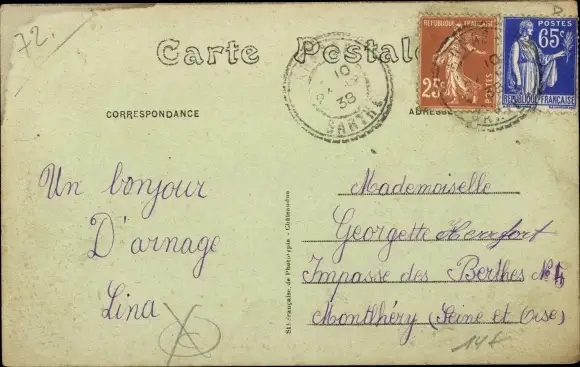 72.
Carte Postale
CORRESPONDANCE
ADRESSE
RÉPUBLIQUE FRANÇAISE
25c
POSTES
POSTES
65c
RÉPUBLIQUE FRANÇAISE
10
38
SARTHE
10
Un bonjour
D'arnage
Lina
Sté Française de Phototypie - Châteaudun
Mademoiselle
Georgette Herrfort
Impasse des Berthes N.
Montlhéry (Seine et Oise)